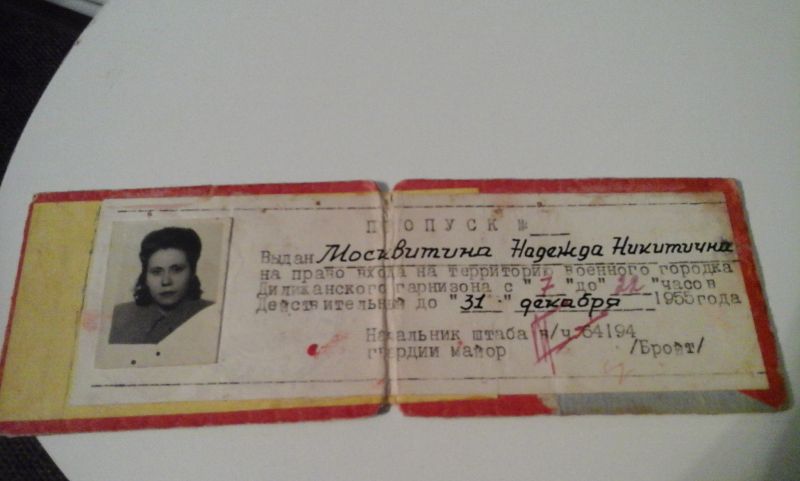 ПРОПУСК №
Выдан Москвитина Надежда Никитична
на право входа на территорию военного городка
Дилижанского гарнизона с "7" до "22" часов
Действительный до "31" декабря 1955 года
Начальник штаба в/ч 64194
гвардии майор /Бройт/